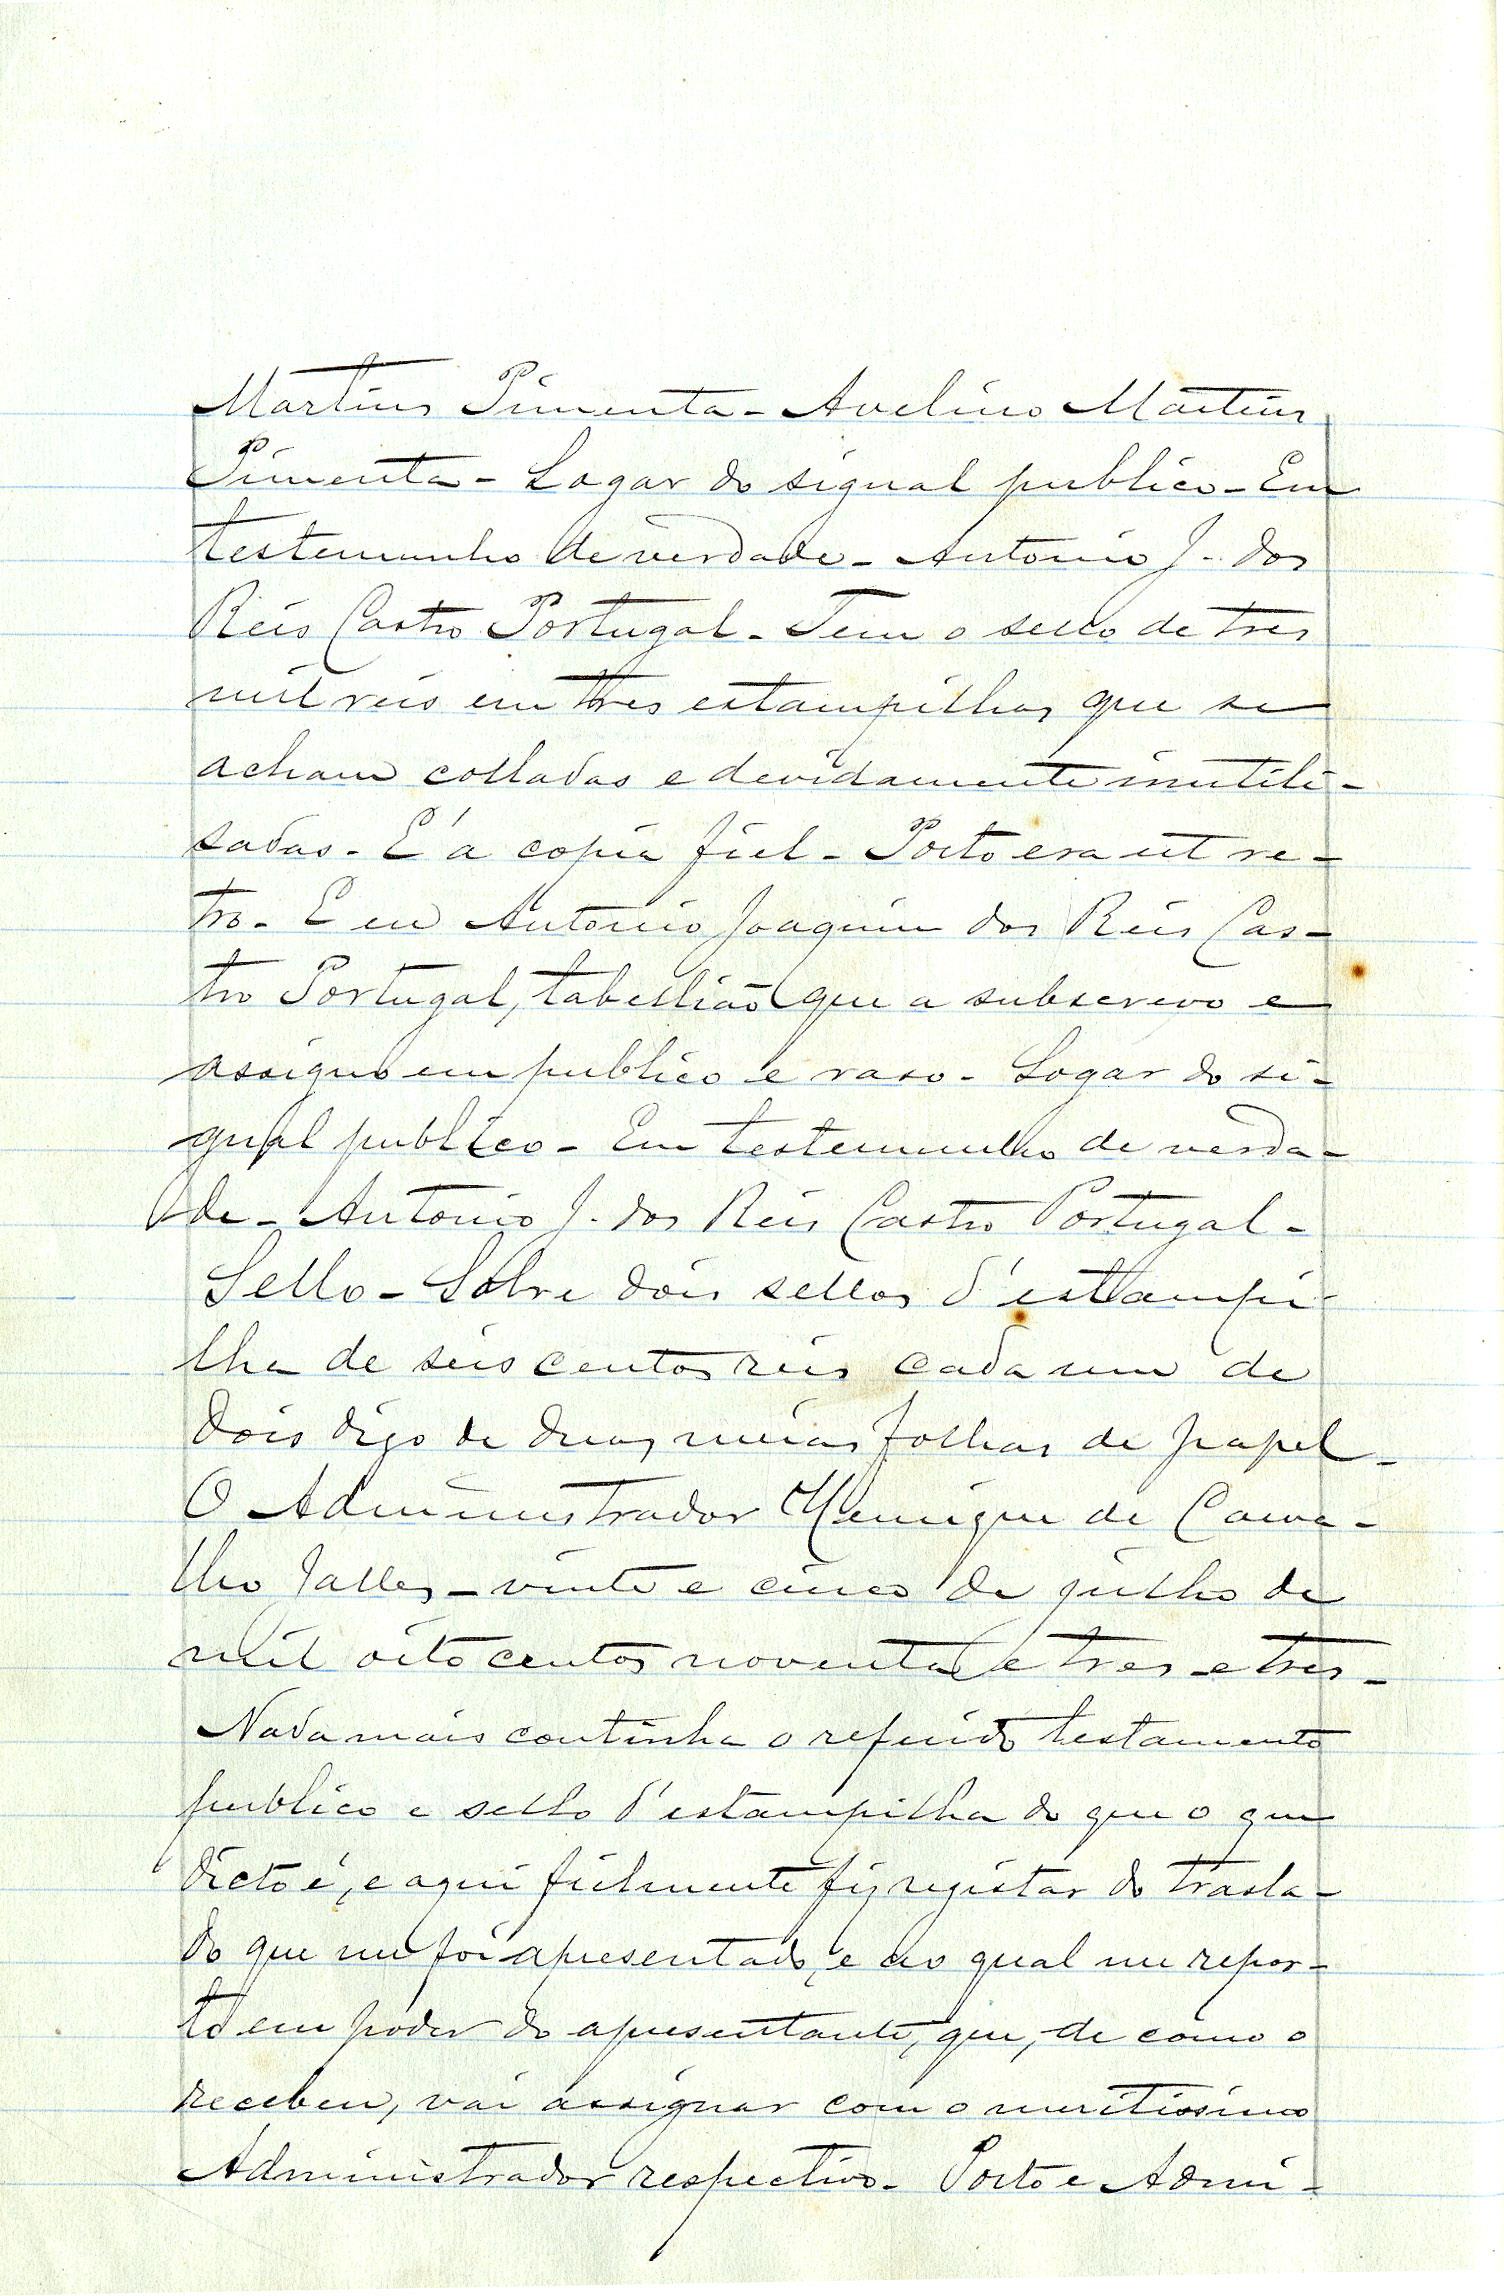 Martins Pimenta - Avelino Martins
Pimenta - Logar do signal publico - Em
testemunho de verdade - Antonio J. dos
Reis Castro Portugal - Tem o sello de tres
mil reis em tres estampilhas que se
acham colladas e devidamente inutili-
sadas - E' a copia fiel - Porto era ut re-
tro - E eu Antonio Joaquim dos Reis Cas-
tro Portugal, tabellião que a subscrevo e
assigno em publico e raso - Logar do si-
gnal publico - Em testemunho de verda-
de - Antonio J. dos Reis Castro Portugal -
Sello - Sobre dois sellos d'estampi-
lha de seis centos reis cada um de
dois digo de duas meias folhas de papel -
O Administrador Henrique de Carva-
lho Salles - vinte e cinco de julho de
mil oito centos noventa e tres e tres -
Nada mais continha o referido testamento
publico e sello d'estampilha do que o que
dicto é, e aqui fielmente fiz registar do trasla-
do que me foi apresentado, e ao qual me repor-
to em poder do apresentante, que, de como o
recebeu, vai assignar com o meritissimo
Administrador respectivo - Porto e Admi-